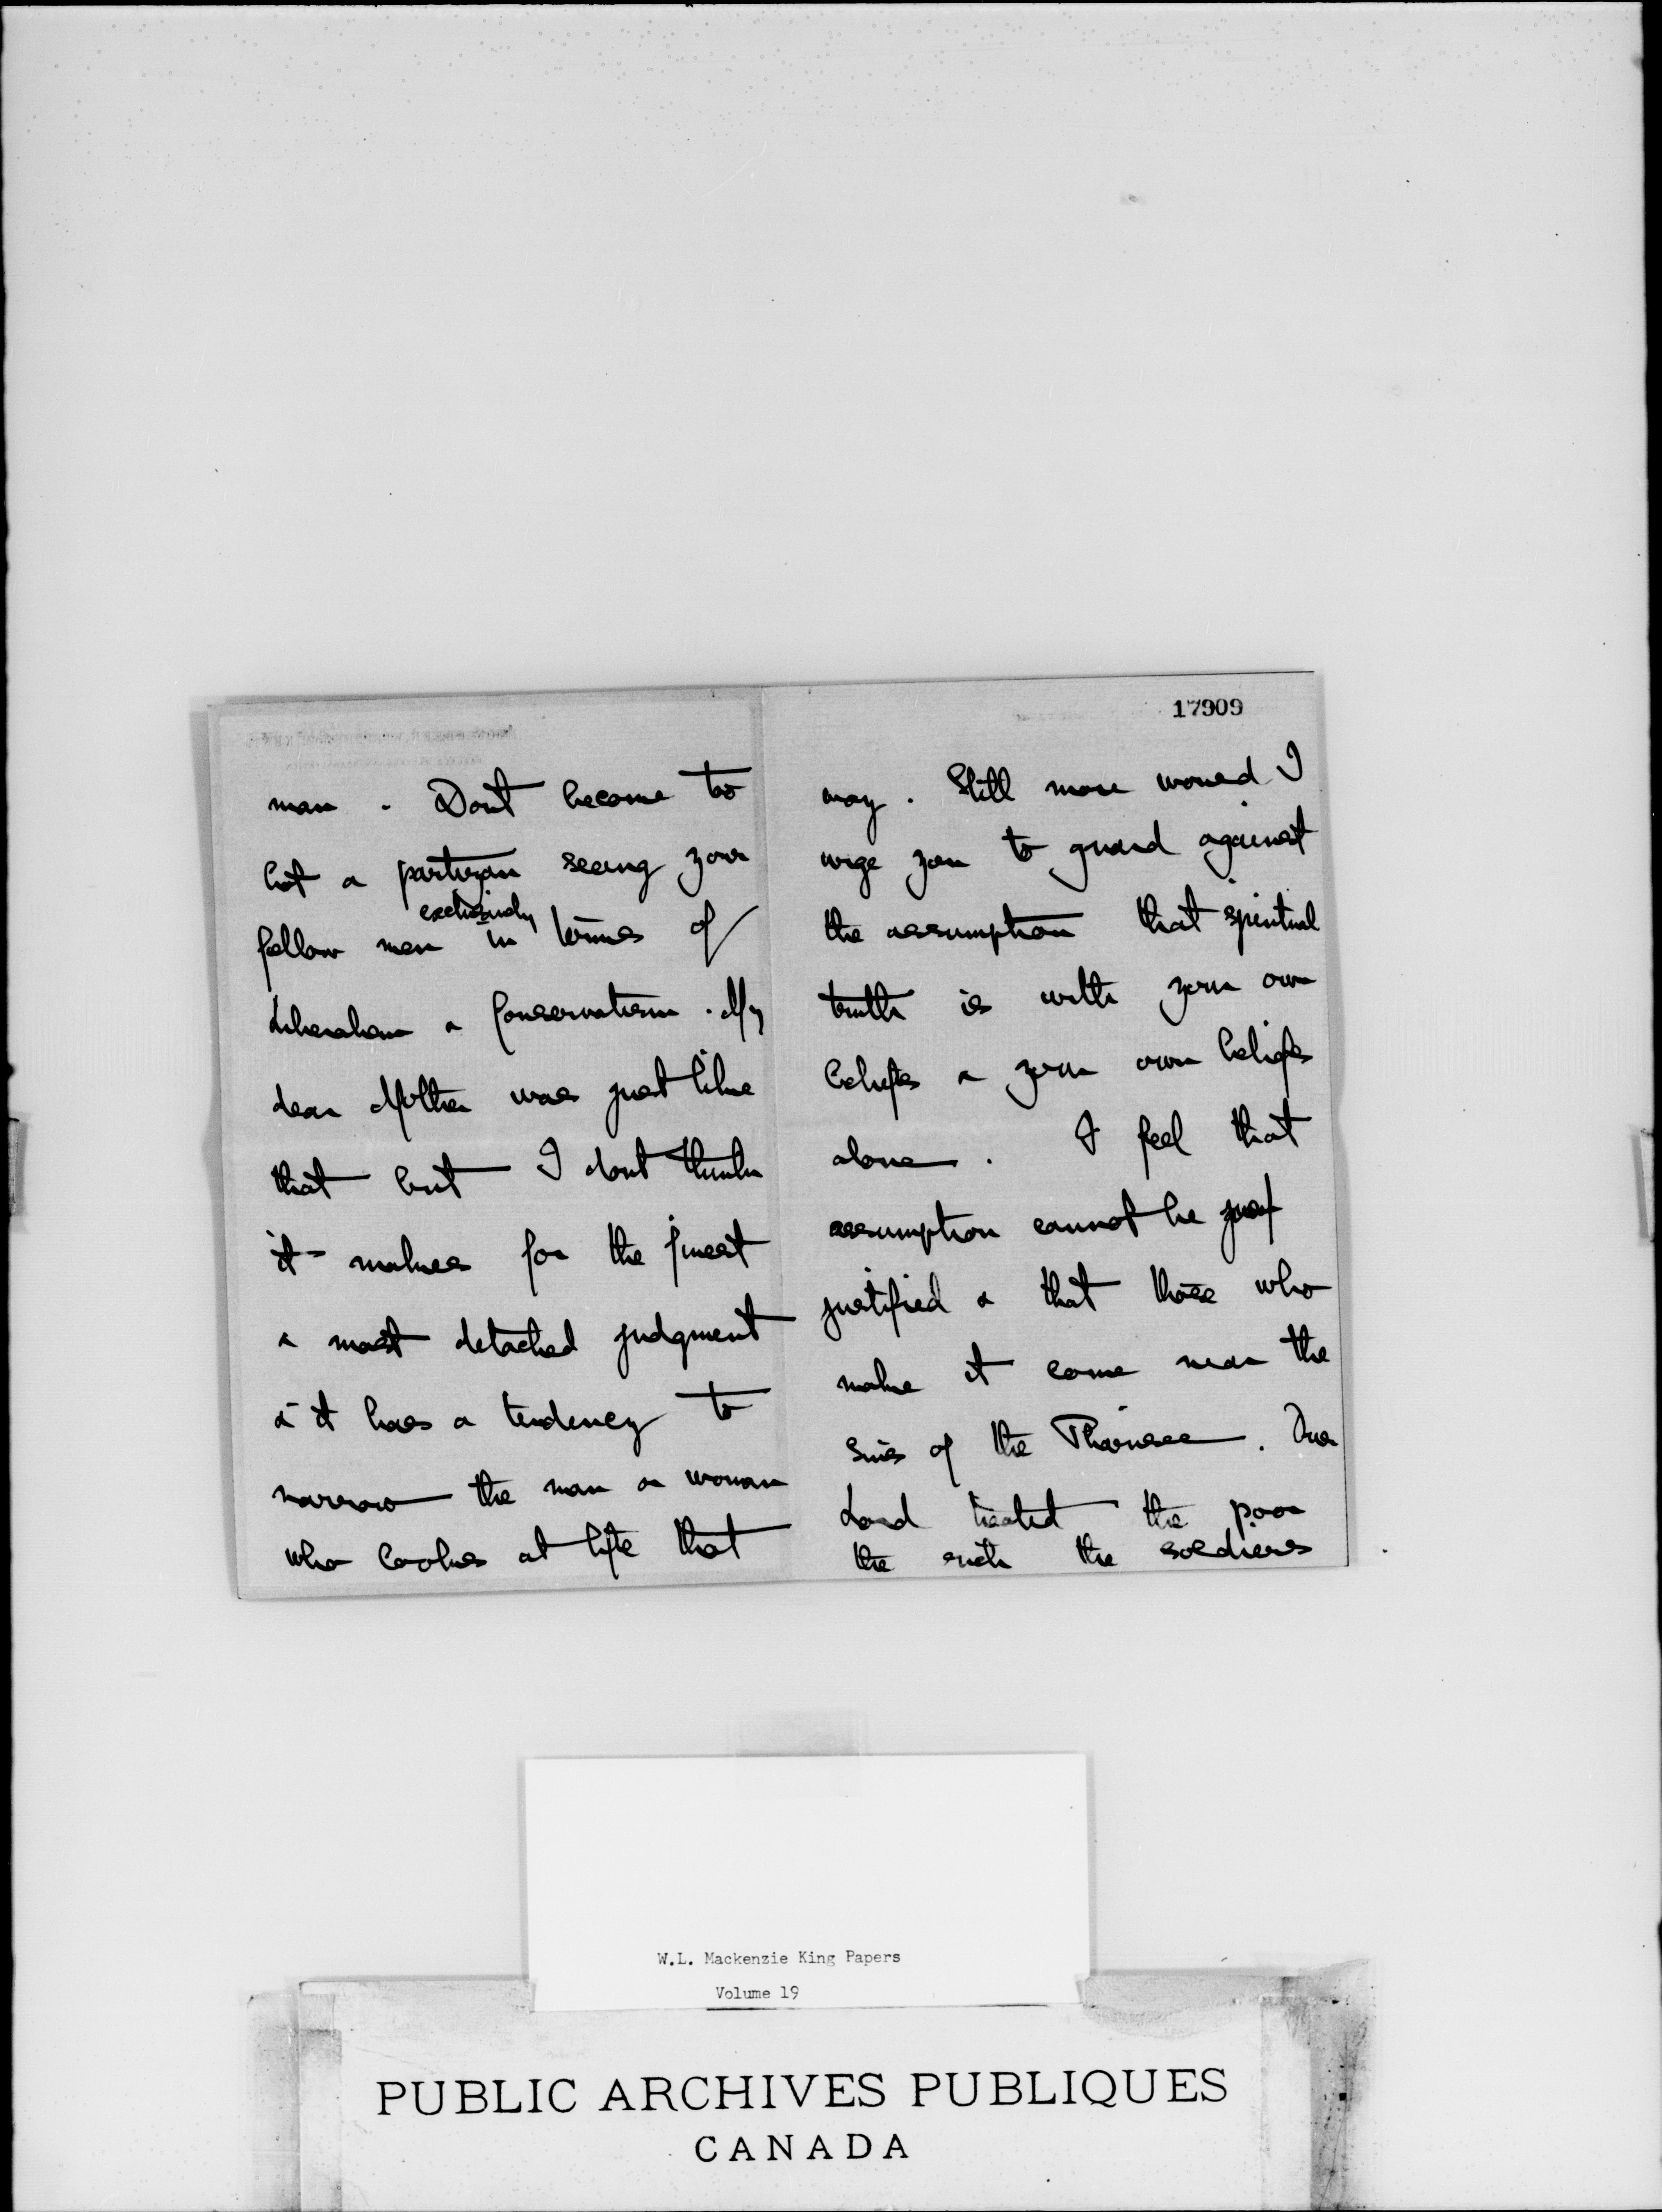 man. Dont become too
hot a partizan seeing your
exclusively
fellow men in terms of
Liberalism & Conservatism. My
dear Mother was just like
that but I dont think
it makes for the finest
& most detached judgment
& it has a tendency to
narrow the man or woman
who looks at life that
17909
way. Still more would I
urge you to guard against
the assumption that spiritual
truth is with your own
beliefs & your own beliefs
alone. I feel that
assumption cannot be
justified & that those who
make it come near the
sins of the Pharisee. Our
Lord treated the poor
the rich the soldiers
W.L. Mackenzie King Papers
Volume 19
PUBLIC ARCHIVES PUBLIQUES
CANADA